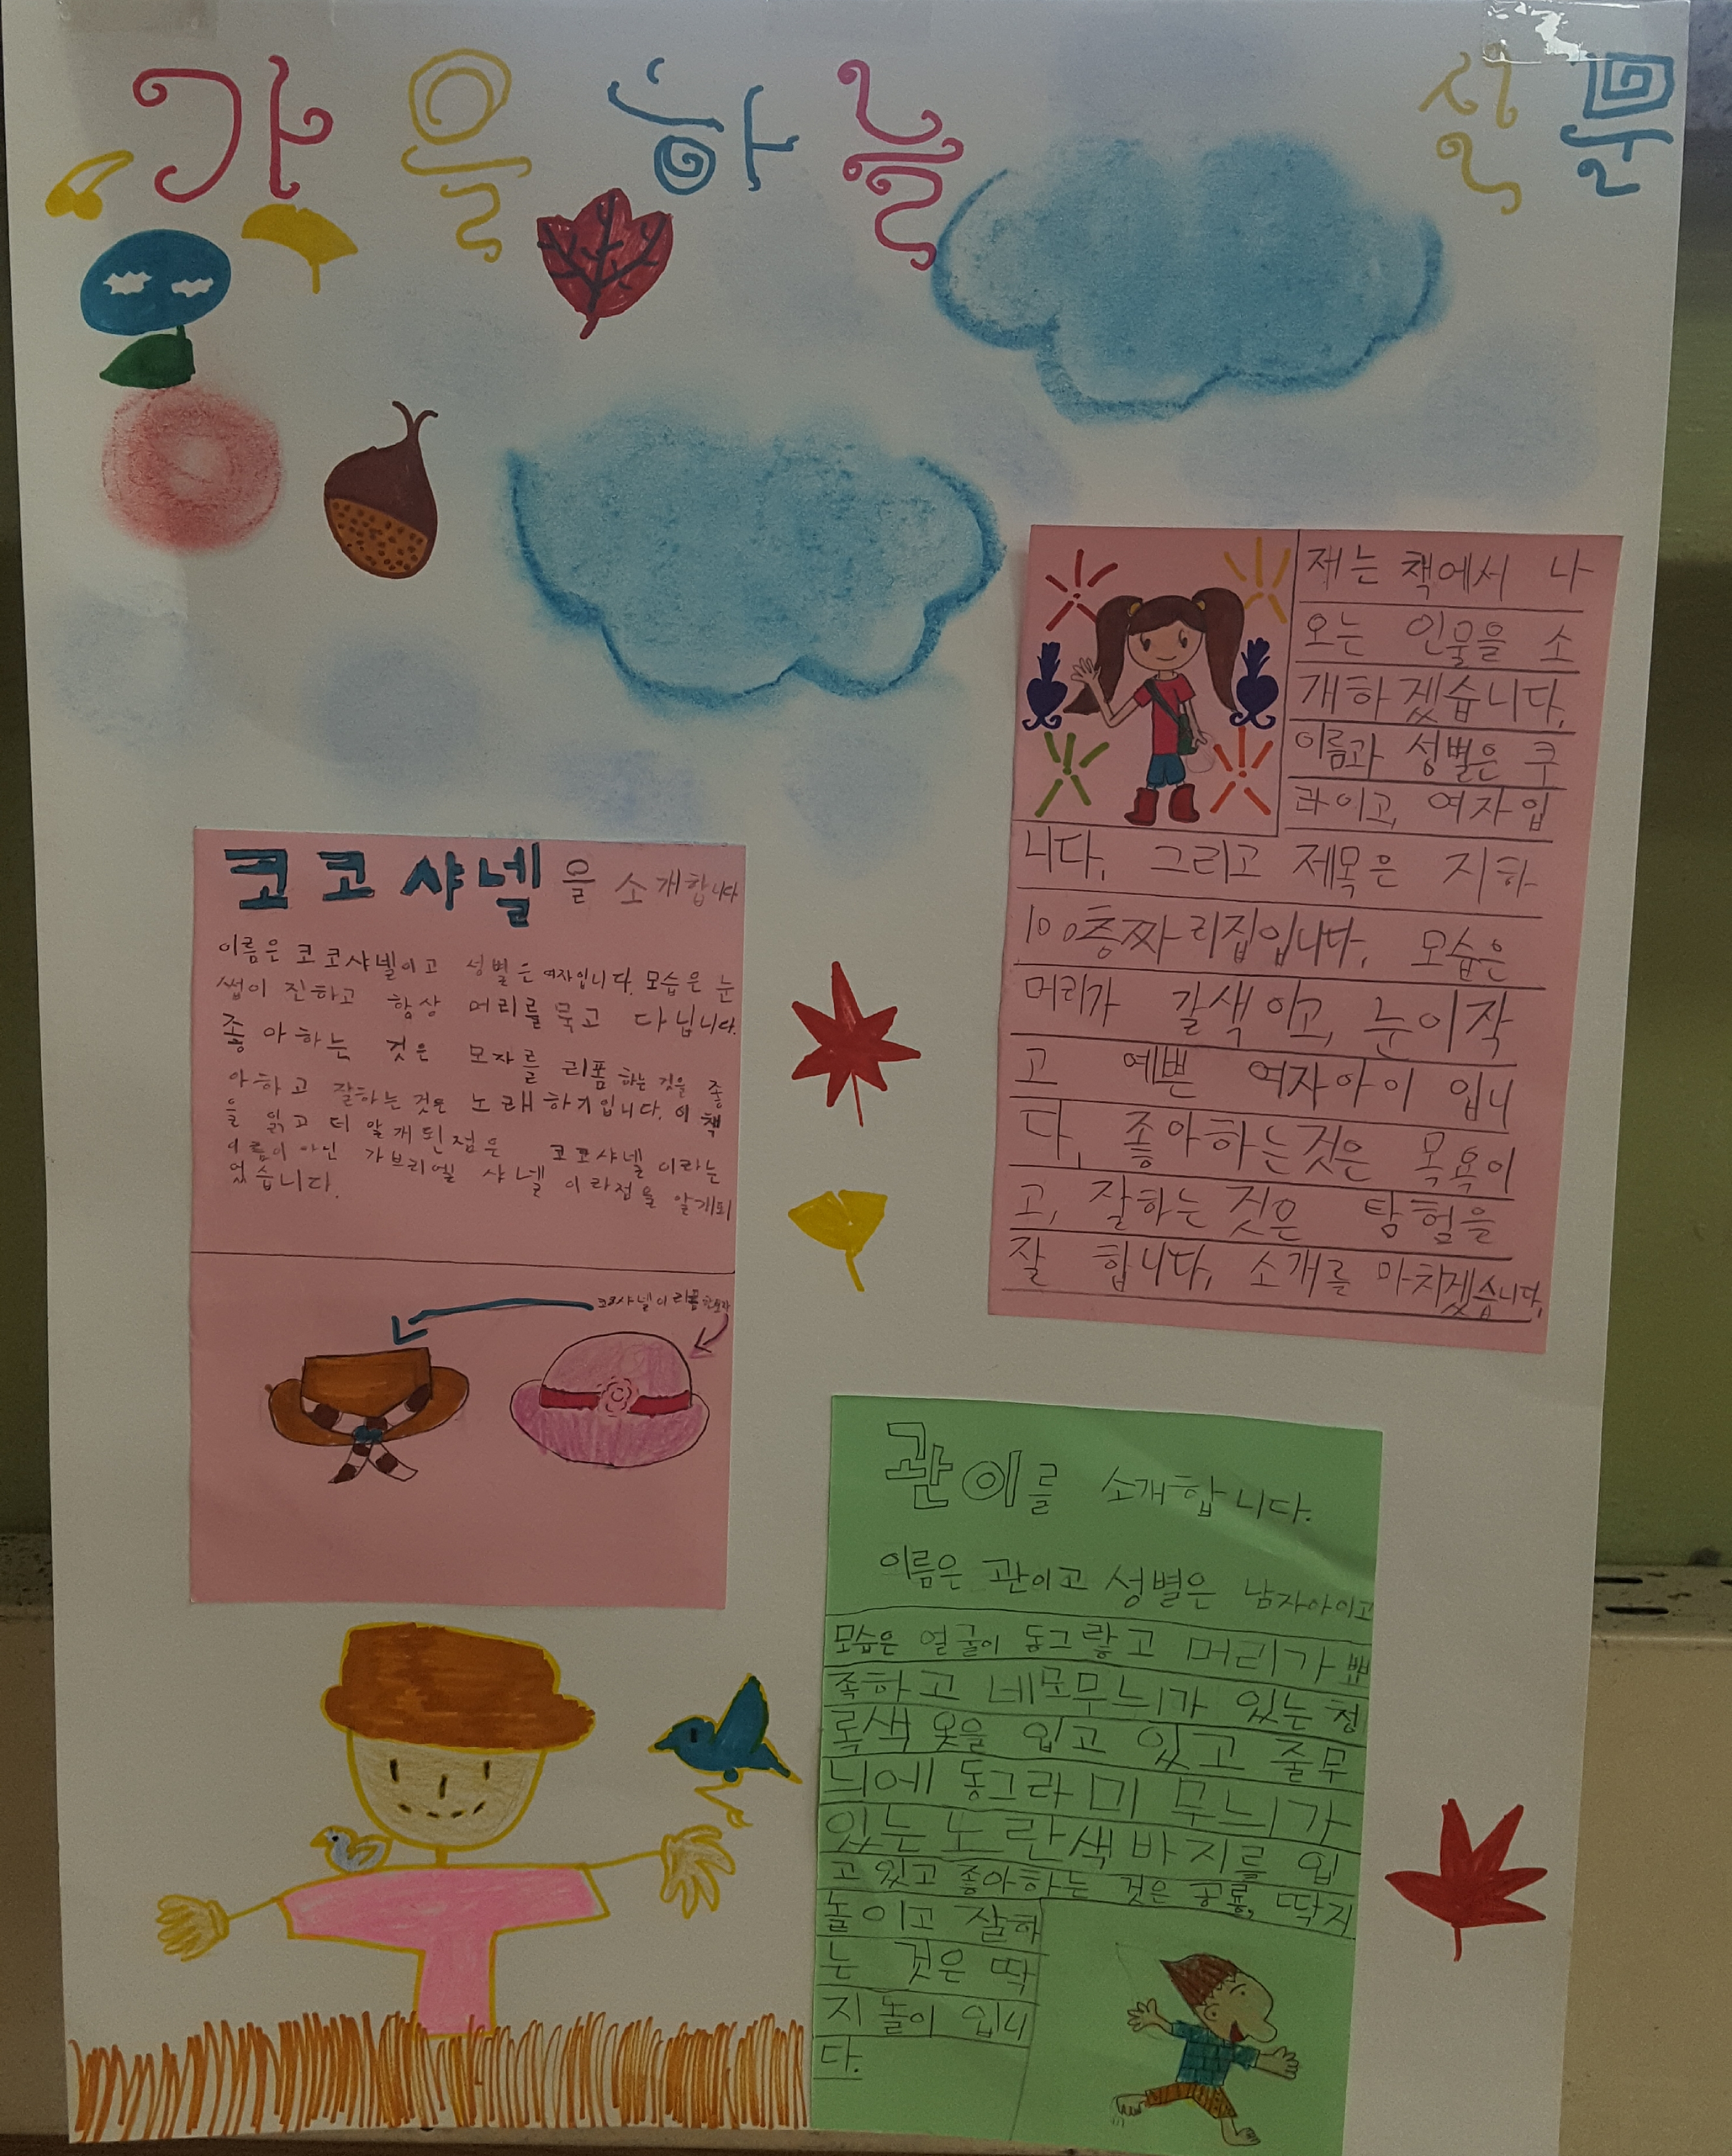 가을하늘 신문
코코샤넬을 소개합니다
이름은 코코샤넬이고 성별은 여자입니다. 모습은 눈
썹이 진하고 항상 머리를 묶고 다닙니다.
좋아하는 것은 모자를 리폼하는 것을 좋
아하고 잘하는 것은 노래하기입니다. 이 책
을 읽고 더 알게된점은 코코샤넬이라는
이름이 아닌 가브리엘 샤넬이라점을 알게되
었습니다.
코코샤넬이 리폼한모자
저는 책에서 나
오는 인물을 소
개하겠습니다.
이름과 성별은 쿠
라이고, 여자입
니다. 그리고 제목은 지하
100층짜리집입니다. 모습은
머리가 갈색이고, 눈이작
고 예쁜 여자아이 입니
다. 좋아하는것은 목욕이
고, 잘하는 것은 탐험을
잘 합니다. 소개를 마치겠습니다.
관이를 소개합니다.
이름은 관이고 성별은 남자아이고
모습은 얼굴이 동그랗고 머리가 뾰
족하고 네모무늬가 있는 청
록색 옷을 입고 있고 줄무
늬에 동그라미 무늬가
있는 노란색바지를 입
고 있고 좋아하는 것은 공룡, 딱지
놀이고 잘하
는 것은 딱
지놀이 입니
다.